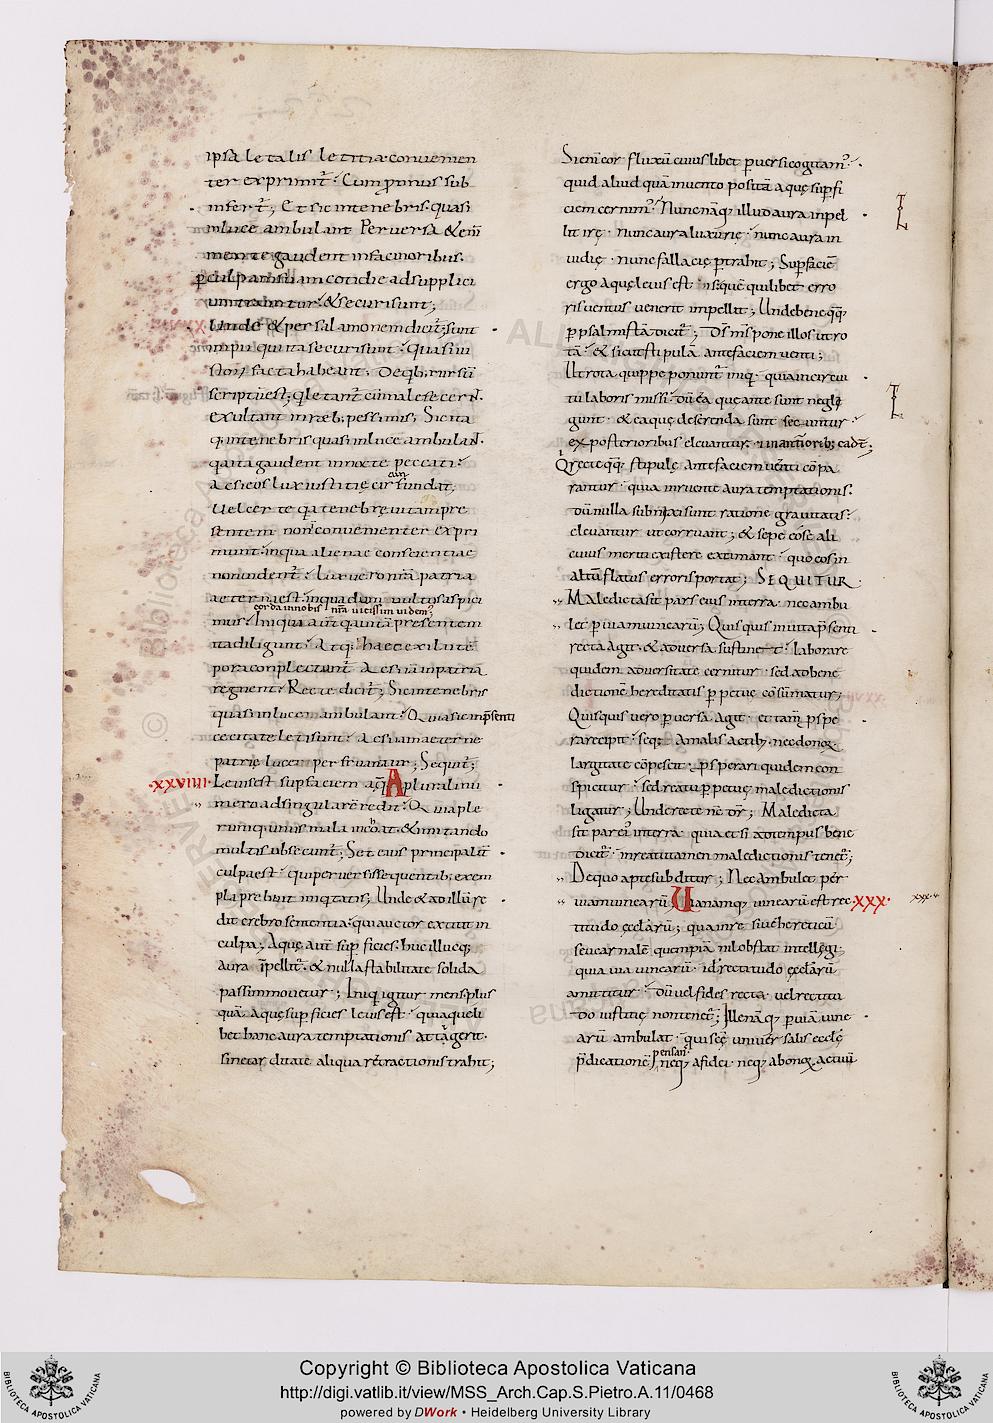 ipsa letalis letitia convenien
ter exprimit᷑. Cum ꝓtinus sub
infert᷑; Et sic in tenebris quasi
in luce ambulant Perversa &eni
mente gaudent in facinoribus.
ꝑ culpam suam cotidie ad supplici
um trahuntur. & securi sunt;
Unde & per salamonem dicit᷑; sunt
impii qui ita securi sunt. quasi iu
storū facta habeant. De qb; rursū
scriptū est; q letant᷑ cū male fecerN.
exultant in reb; pessimis; Sic ita
q; in tenebris quasi in luce ambulaN.
qa ita gaudent in nocte peccati.
ac si eos lux iustitię circū fundat;
Vel certe qa tenebrę vitam pre
sentem non inconvenienter expri
munt. in qua alienae conscientiae
non videnť. Lux vero nrā patria
aeterna est. in qua dum vultus aspici
corda in nobis nrā vicissim videmꝰ
mus. Iniqui aūt qa vitā presentem
ita diligunt. Atq; haec exilii tē
pora conplectunt᷑ ac si iā in patria
regnent. Recte dicit᷑; Sic in tenebris
quasi in luce ambulant. Quia sic in p̄senti
cecitate leti sunt. ac si iam aeterne
patrię luce perfruantur; Sequit᷑;
·XXVIIII· Levis est sup faciem aq A plurali nu
mero ad singularē redit. Quia ple
rumq; unus mala inchoat. & imitando
multi subsecunt᷑; Set eius principalit᷑
culpa est. qui perversis sequentib; exem
pla prebuit iniqtatis; Unde & ad illū re
dit crebro sententia. qui auctor extitit in
culpa; Aquę aūt superficies huc illucq;
aura īpellit᷑. & nulla stabilitate solida
passim movetur; Iniq igitur mens plus
quā aquę superficies levis est. quia quęli
bet hanc aura temptationis attigerit.
sine tarditate aliqua retractionis trahit;
Si enī cor fluxū cuiuslibet ꝑversi cogitamꝰ.
quid aliud quā in vento positā aquę supfi
ciem cernimꝰ. Nunc nāq; illud aura inpel
lit irę. nunc aura luxurię. nunc aura in
vidię. nunc fallacię ꝑtrahit; Superficiē
ergo aquę levis est. quē quilibet erro
ris ventus venerit impellit; Unde bene qq;
ꝑ psalmistā dicit᷑; Dś mś pone illos ut ro
tā. & sicut stipulā ante faciem venti;
Ut rota quippe ponunt᷑ iniq. quia in circui
tu laboris missi. dū ea que ante sunt negle
gunt. & ea que deserenda sunt secuntur.
ex posterioribus elevantur. in anteriorib; cadt᷑;
Recte qq; stipulę ante faciem venti cōpa
rantur. quia inruente aura temptationis.
dū nulla subnixi sunt ratione gravitatis.
elevantur ut corruant; & sepe cōse ali
cuius meriti existere extimant. quo eos in
altū flatus erroris portat; SEQUITUR
Maledicta sit pars eius in terra. nec ambu
let ꝑ viam vinearū; Quisquis in vita p̄senti
recta agit. & adversa sustinet. laborare
quidem adversitate cernitur. sed ad bene
dictionē hereditatis ꝑpetuę cōsūmatur;
Quisquis vero ꝑversa agit. et tam̄ pspe
ra recipit. seq; a malis actib; nec donoꝝ
largitate cōpescit. psperari quidem con
spicitur. sed reatu ꝑpetuę maledictionis
ligatur; Unde recte nē dr̄; Maledicta
sit pars ei' in terra. quia etsi ad tempus bene
dicit᷑. in reatu tamen maledictionis tenet᷑;
De quo apte subditur; Nec ambulet per
viam vinearū; Via nāmq; vinearū est rec ·XXX·
titudo ęcclārū; qua in re sive hereticū
seu carnalē quempiā nil obstat intellegi.
quia via vinearū. id' rectitudo ęcclārū
amittitur. dū vel fides recta. vel rectitu
do iustitię non tenet᷑; Ille nāq; ꝑ viā vine
arū ambulat. qui scę universalis ecclę
pensans
p̄dicationē neq; a fidei. neq; a bonoꝝ actuū
Copyright © Biblioteca Apostolica Vaticana
http://digi.vatlib.it/view/MSS_Arch.Cap.S.Pietro.A.11/0468
powered by DWork • Heidelberg University Library
BIBLIOTECA APOSTOLICA VATICANA
BIBLIOTECA APOSTOLICA VATICANA